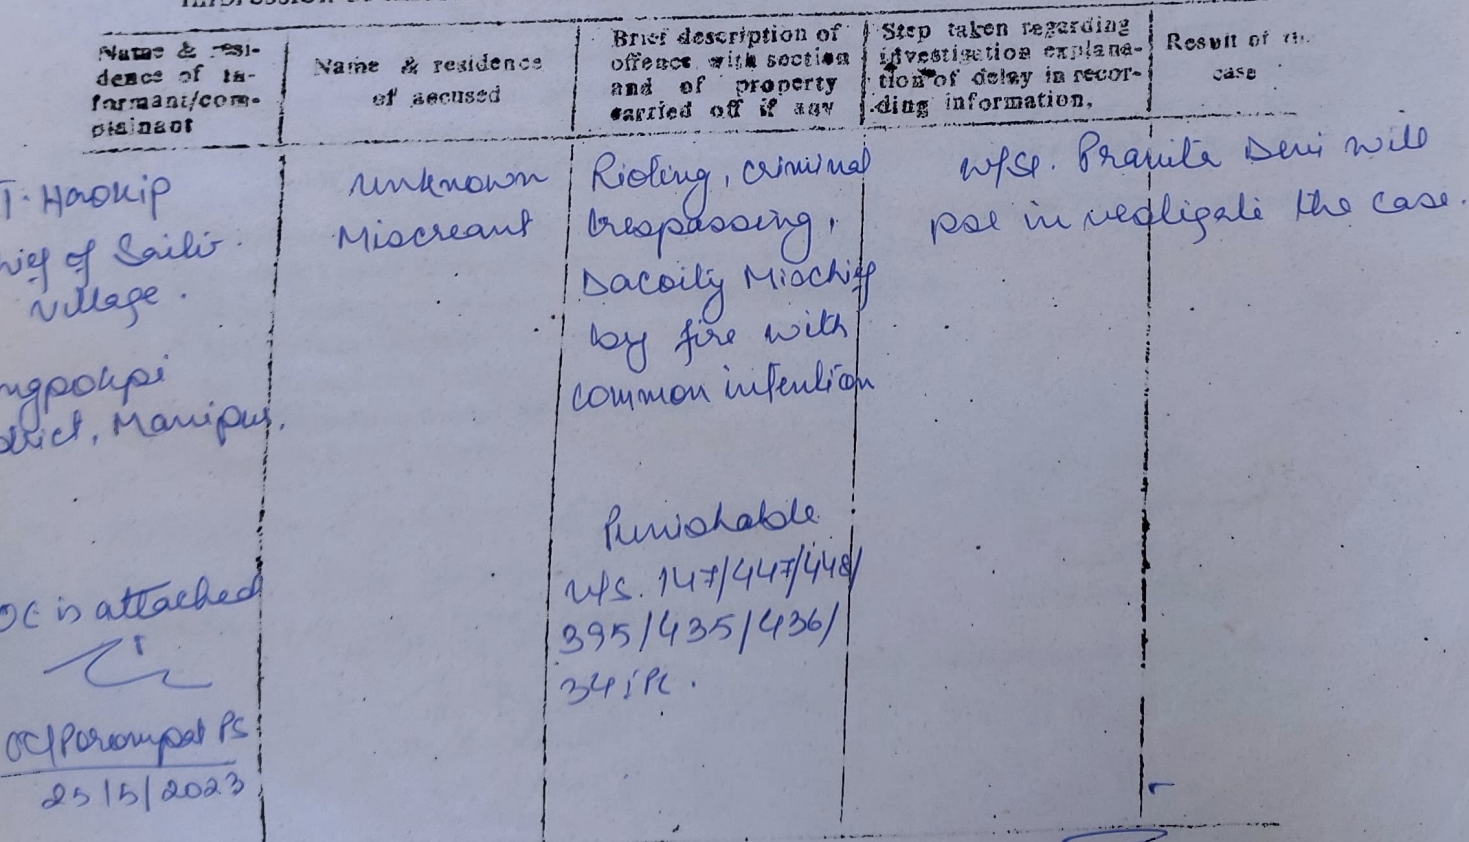 Name & resi-
dence of in-
formant/com-
plainant
Name & residence
of accused
Brief description of
offence with section
and of property
carried off if any
Step taken regarding
investigation explana-
tion of delay in recor-
ding information,
Result of
case
T. Haokip
of
village.
ngpokpi
, Manipur.
OE is attached
OC/Porompat PS
25/5/2023
unknown
Miscreant
Rioting, criminal
trespassing,
Dacoity Mischief
by fire with
common intention
Punishable
u/s. 147/447/448/
395/435/436/
34 IPC.
Pramita Devi will
the case.